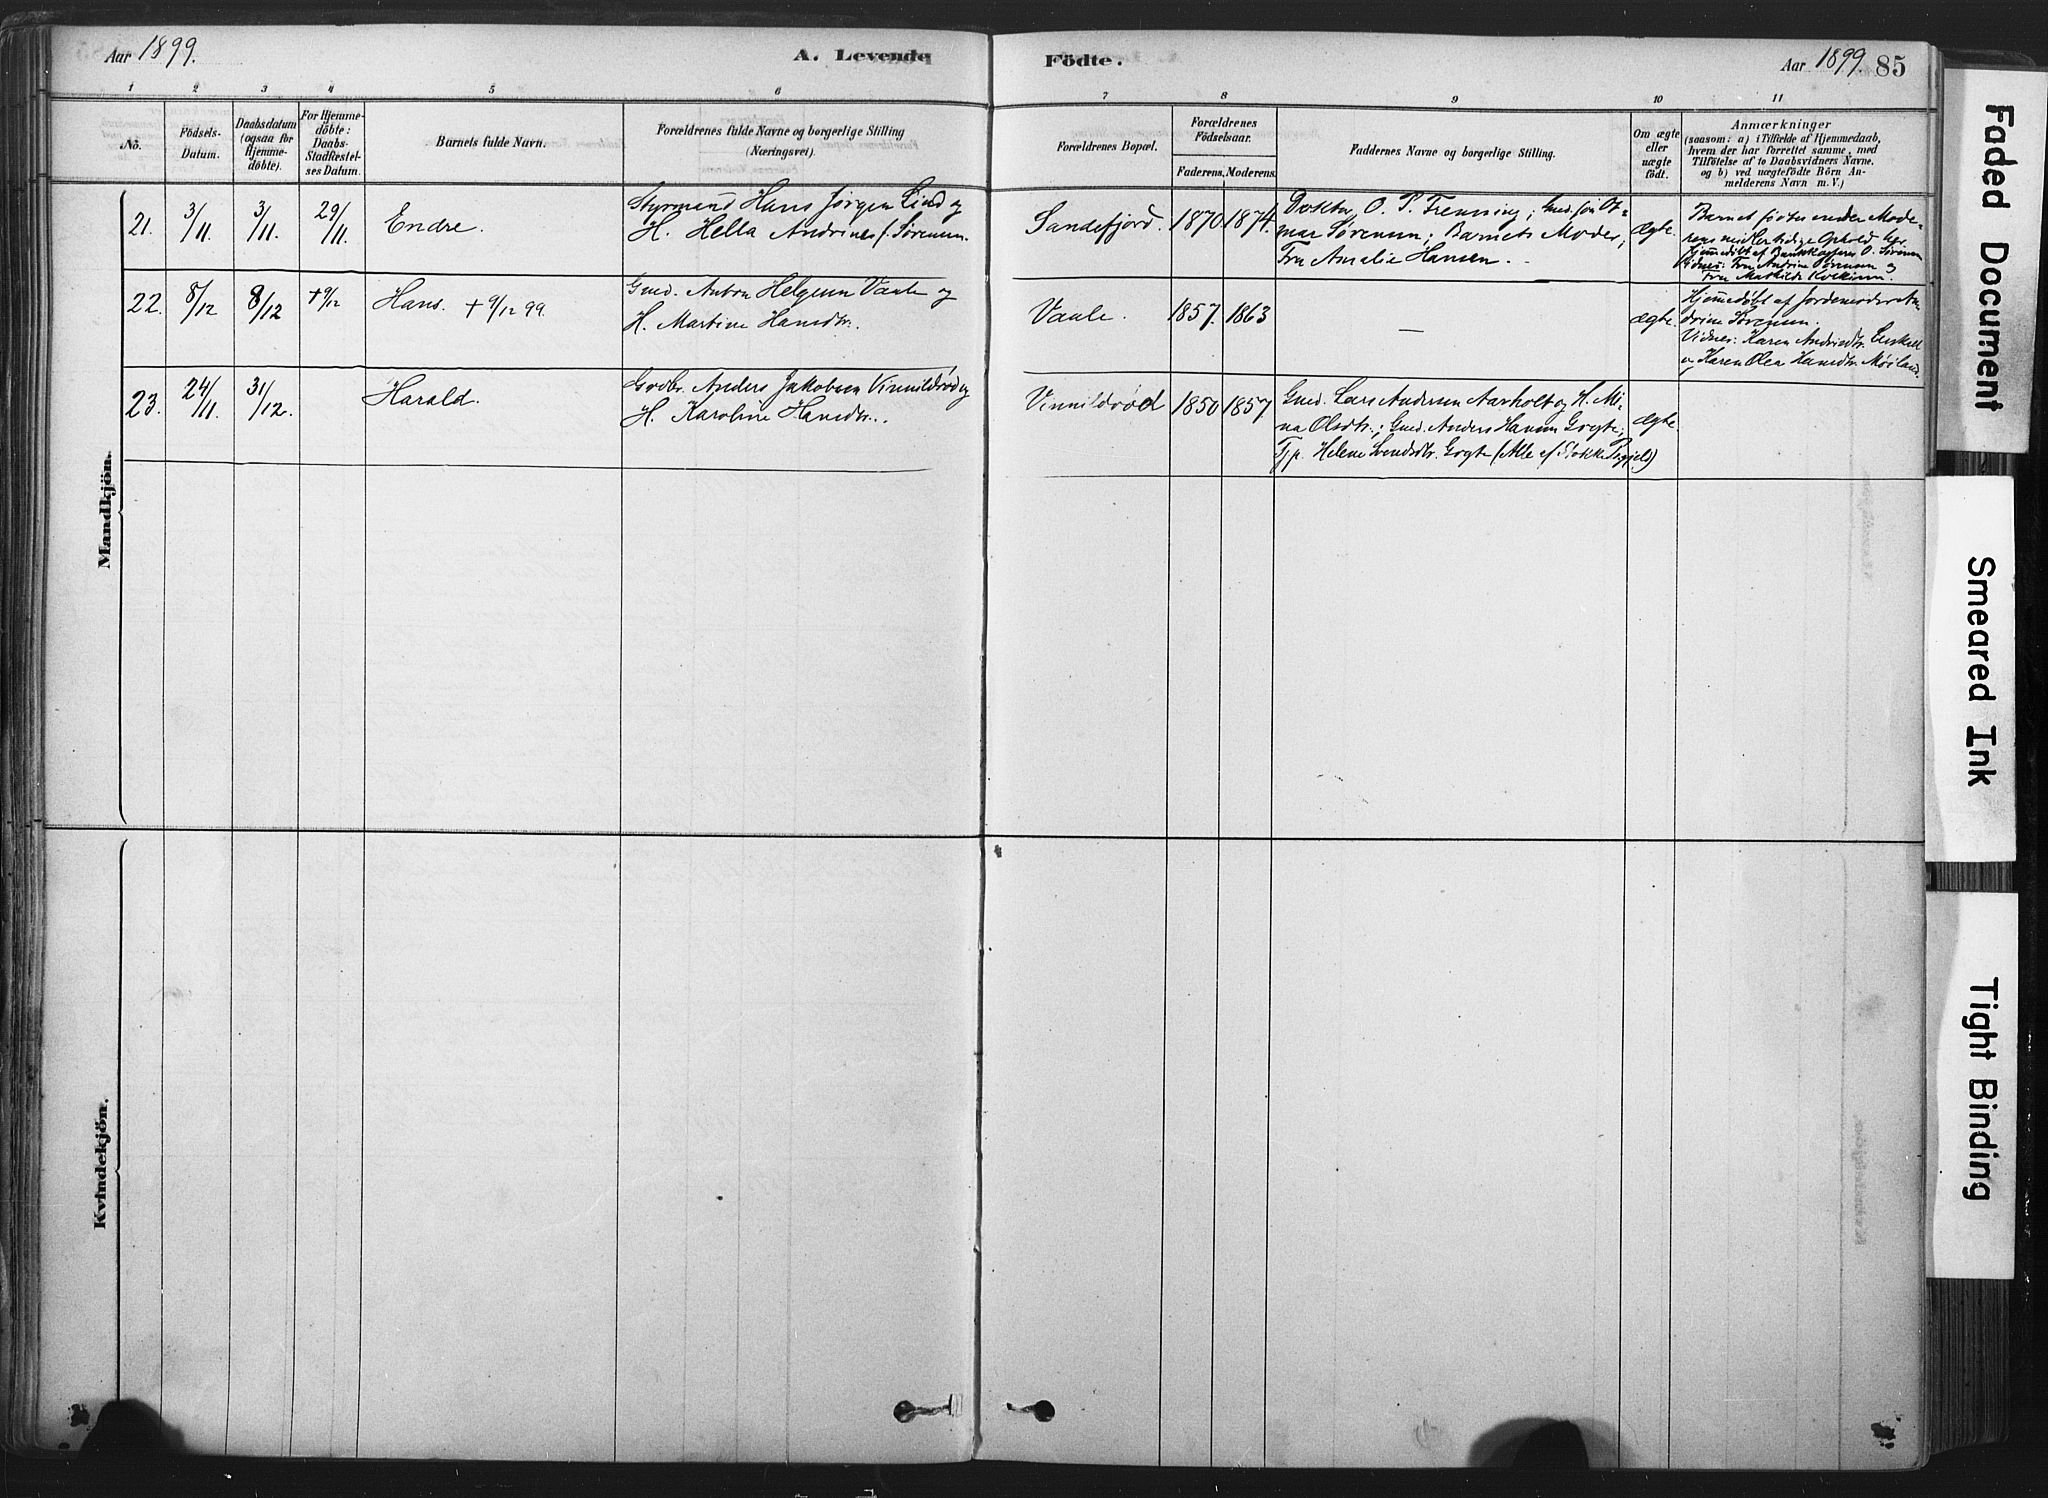 Aar 1899. A. Levende Födte. Aar 1899. 85
1 2 3 4 5 6 7 8 9 10 11
No.
Födsels-
Datum.
Daabsdatum
(ogsaa for
Hjemme-
döbte).
For Hjemme-
döbte:
Daabs-
Stadfæstel-
ses Datum.
Barnets fulde Navn.
Forældrenes fulde Navne og borgerlige Stilling
(Næringsvei).
Forældrenes Bopæl.
Forældrenes
Födselsaar.
Faderens. Moderens.
Faddernes Navne og borgerlige Stilling.
Om ægte
eller
uægte
födt.
Anmærkninger
(saasom: a) i Tilfælde af Hjemmedaab,
hvem der har forrettet samme, med
Tilföielse af to Daabsvidners Navne.
og b) ved uægtefödte Börn An-
melderens Navn m. V.)
Mandkjön.
21. 3/11. 3/11. 29/11. Endre.
Styrmand Hans Jørgen Lind og
H. Hella Andrines f. Sørensen.
Sandefjord. 1870 1874.
Doktor O. P. Frenning; Gmd. søn Ot-
mar Sørensen; Barnets Moder;
Fru Amalie Hansen.
ægte.
Barnet født under Mode-
rens midlertidige Ophold her.
Hjemmedøbt af Bankkasserer O. Sørensen
Vidner: Fru Andrine Sørensen og
Fru Mathilde
22. 8/12 8/12 + 9/12 Hans. + 9/12 99.
Gmd. Anton Helgesen Vaale og
H. Martine Hansdtr.
Vaale. 1857. 1863 —
ægte.
Hjemmedøbt af Jordemoder An-
drine Sørensen.
Vidner: Karen Andriedtr.
og Karen Olea Hansdtr. Møiland.
23. 24/11. 31/12. Harald.
Gvdbr. Anders Jakobsen Vinnildrød og
H. Karoline Hansdtr.
Vinnildrød 1850 1857
Gmd. Lars Andersen Aarholt og H. Mi-
na Olsdtr.; Gmd. Anders Hansen Gogte;
Tjp. Helene Svendsdtr. Gogte (Alle af Stokke Prgjeld)
ægte.
Kvindekjön.
Faded Document
Smeared Ink
Tight Binding